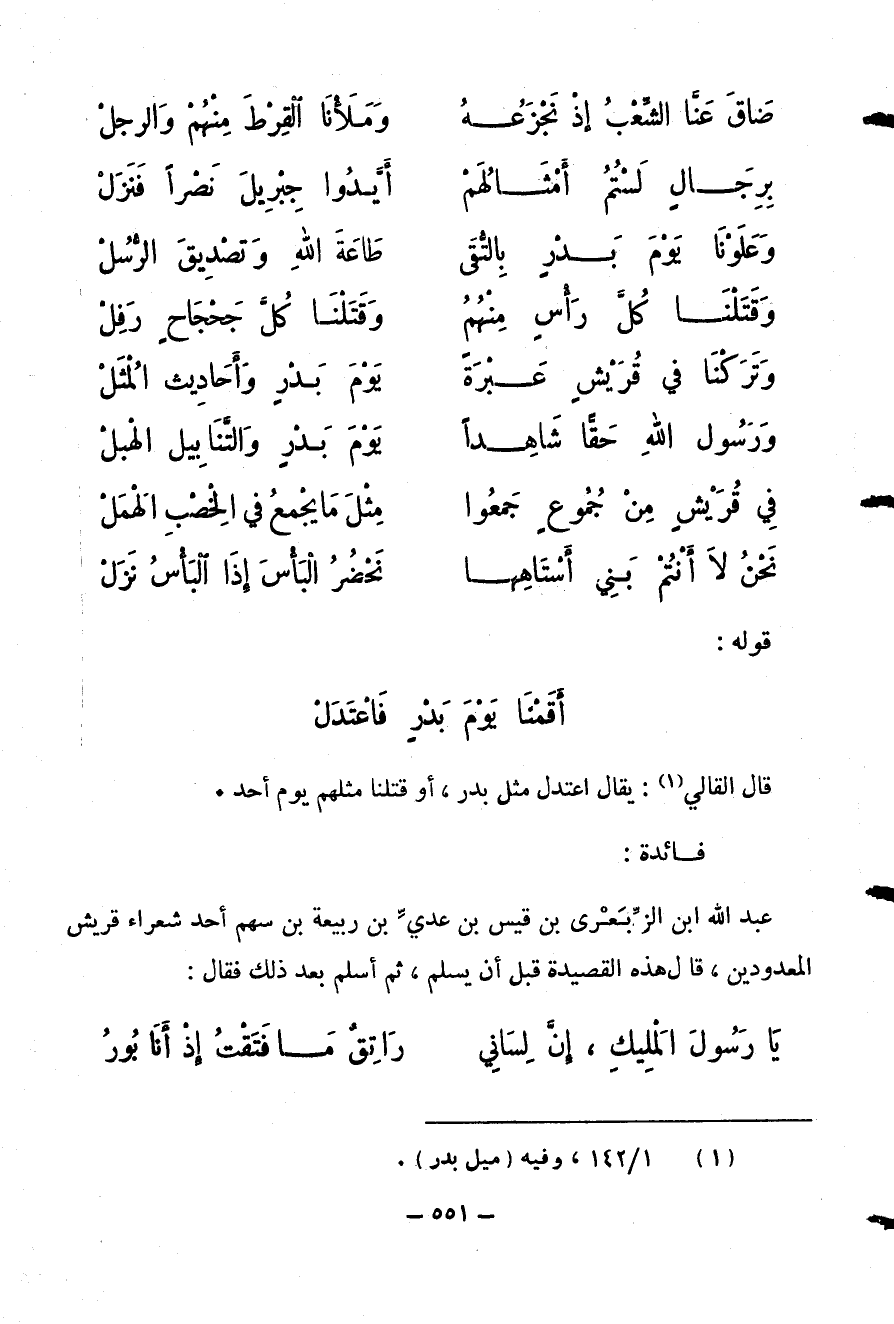 ضَاقَ عَنَّا الشِّعْبُ إِذْ نَجْزَعُهُ وَمَلَأْنَا ٱلْفِرْطَ مِنْهُمْ وَالرجلْ
بِرِجَالٍ لَسْتُمُ أَمْثَالُهَمْ أَيَّدُوا جِبْرِيلَ نَصْراً فَنَزَلْ
وَعَلَوْنَا يَوْمَ بَدْرٍ بِالتُّقَى طَاعَةَ اللهِ وَتصْدِيقَ الرُّسُلْ
وَقَتَلْنَا كُلَّ رَأْسٍ مِنْهُمُ وَقَتَلْنَا كُلَّ جَحْجَاحٍ رَفِلْ
وَتَرَكْنَا في قُرَيْشٍ عَبْرَةً يَوْمَ بَدْرٍ وَأَحَادِيث الْمْثَلْ
وَرَسُول اللهِ حَقًّا شَاهِداً يَوْمَ بَدْرٍ وَالتَّنَابِيل الهبلْ
فِي قُرَيْشٍ مِنْ جُمُوعٍ جَمَعُوا مِثْلَ مَا يجْمعُ في الْخِصْبِ الْهَمَلْ
نَحْنُ لاَ أَنْتُمْ بَنِي أَسْتَاهِها نَحْضُرُ الْبَأْسَ إِذَا ٱلْبَأْسُ نَزَلْ
قوله :
أَقَمْنَا يَوْمَ بَدْرٍ فَاعْتَدَلْ
قال القالي(١) : يقال اعتدل مثل بدر ، أو قتلنا مثلهم يوم أحد .
فائدة :
عبد الله ابن الزِّبَعْرى بن قيس بن عديّ بن ربيعة بن سهم أحد شعراء قريش
المعدودين ، قا ل هذه القصيدة قبل أن يسلم ، ثم أسلم بعد ذلك فقال :
يَا رَسُولَ الْمَلِيكِ ، إِنَّ لِسَانِي رَاتِقٌ مَا فَتَقْتُ إِذْ أَنَا بُورُ
(١) ١٤٢/١ ، وفيه (ميل بدر) .
– ٥٥١ –